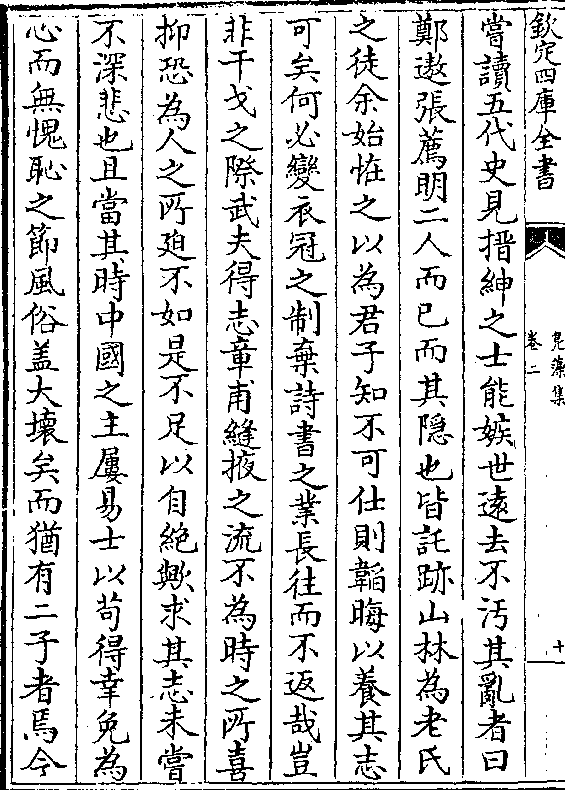 欽定四庫全書
鳧藻集
卷二
十
嘗讀五代史見搢紳之士能嫉世遠去不汚其亂者曰
鄭遨張薦明二人而已而其隱也皆託跡山林為老氏
之徒余始恠之以為君子知不可仕則韜晦以養其志
可矣何必變衣冠之制棄詩書之業長往而不返哉豈
非干戈之際武夫得志章甫縫掖之流不為時之所喜
抑恐為人之所廹不如是不足以自絶歟求其志未嘗
不深悲也且當其時中國之主屢易士以苟得幸免為
心而無愧恥之節風俗盖大壞矣而猶有二子者焉今